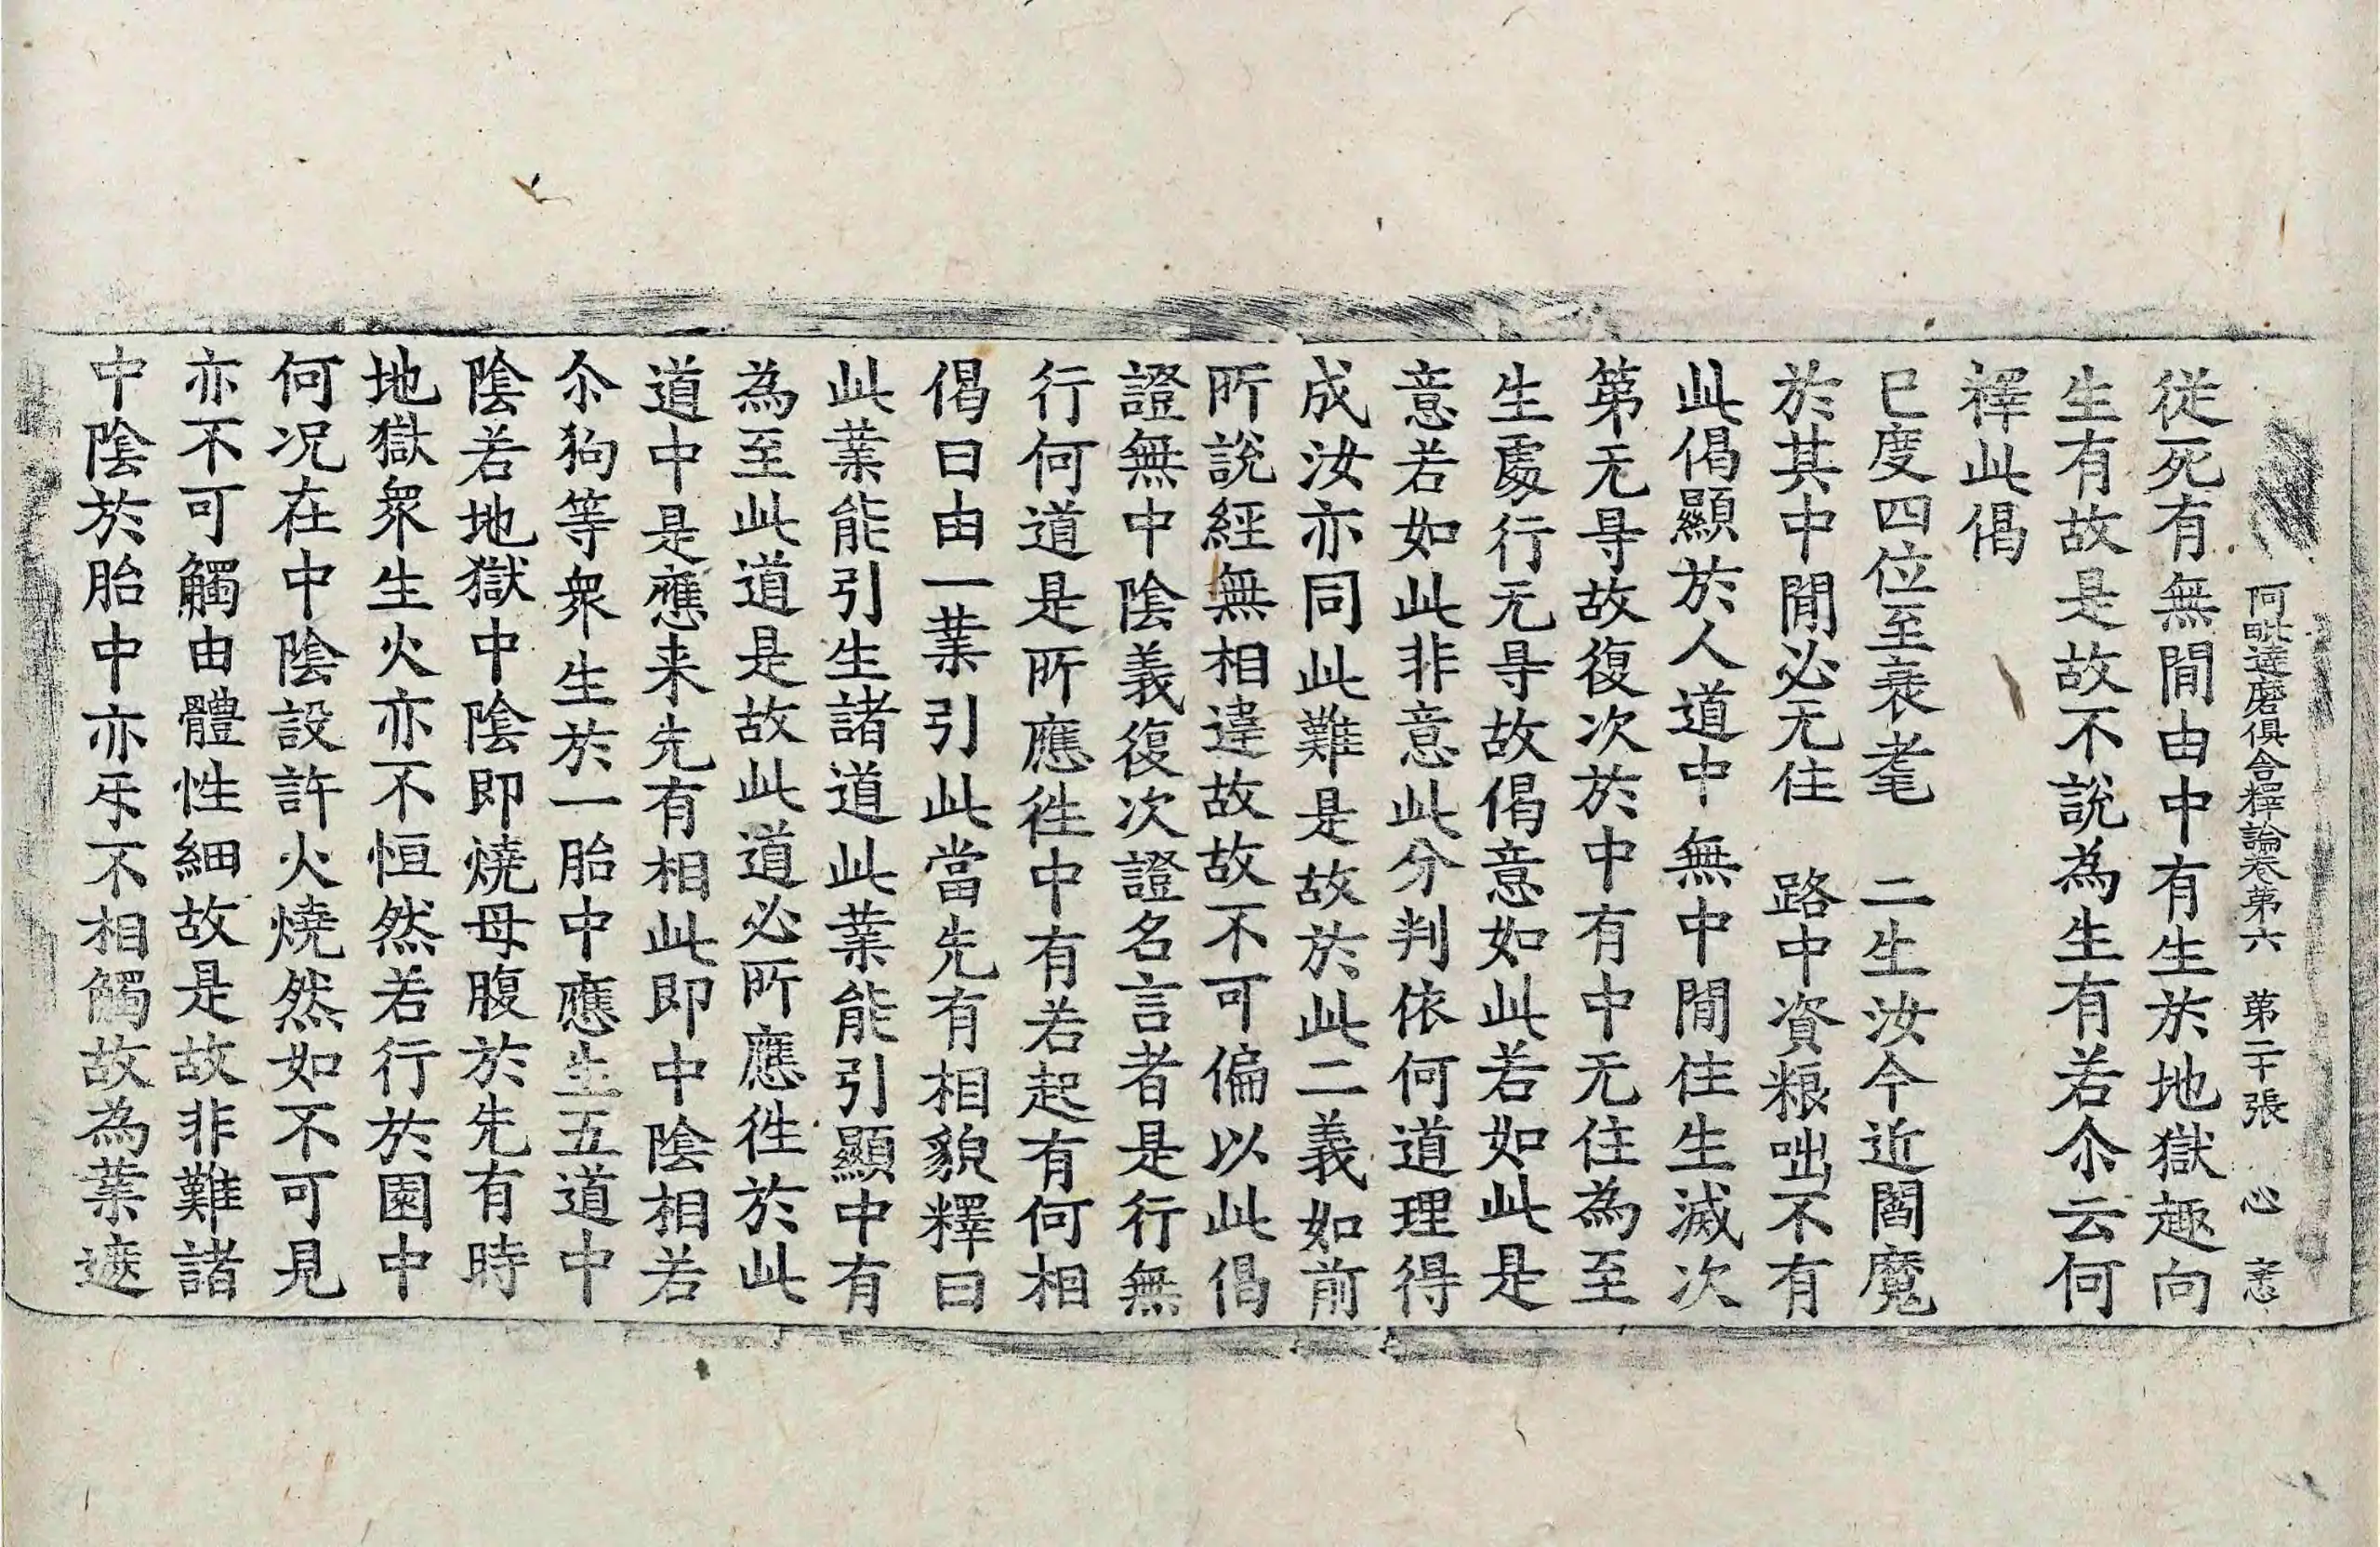 阿毗達磨俱舍釋論卷第六 第二十張 心
從死有無間由中有生於地獄趣向
生有故是故不說為生有若尒云何
釋此偈
已度四位至衰耄 二生汝今近閻魔
於其中閒必无住 路中資粮咄不有
此偈顯於人道中無中間住生滅次
第无㝵故復次於中有中无住為至
生處行无㝵故偈意如此若如此是
意若如此非意此分判依何道理得
成汝亦同此難是故於此二義如前
所說經無相違故故不可偏以此偈
證無中陰義復次證名言者是行無
行何道是所應徃中有若起有何相
偈曰由一業引此當先有相貌釋曰
此業能引生諸道此業能引顯中有
為至此道是故此道必所應徃於此
道中是應来先有相此即中陰相若
尒狗等衆生於一胎中應生五道中
陰若地獄中陰即燒母腹於先有時
地獄衆生火亦不恒然若行於園中
何况在中陰設許火燒然如不可見
亦不可觸由體性細故是故非難諸
中陰於胎中亦㸦不相觸故為業遮